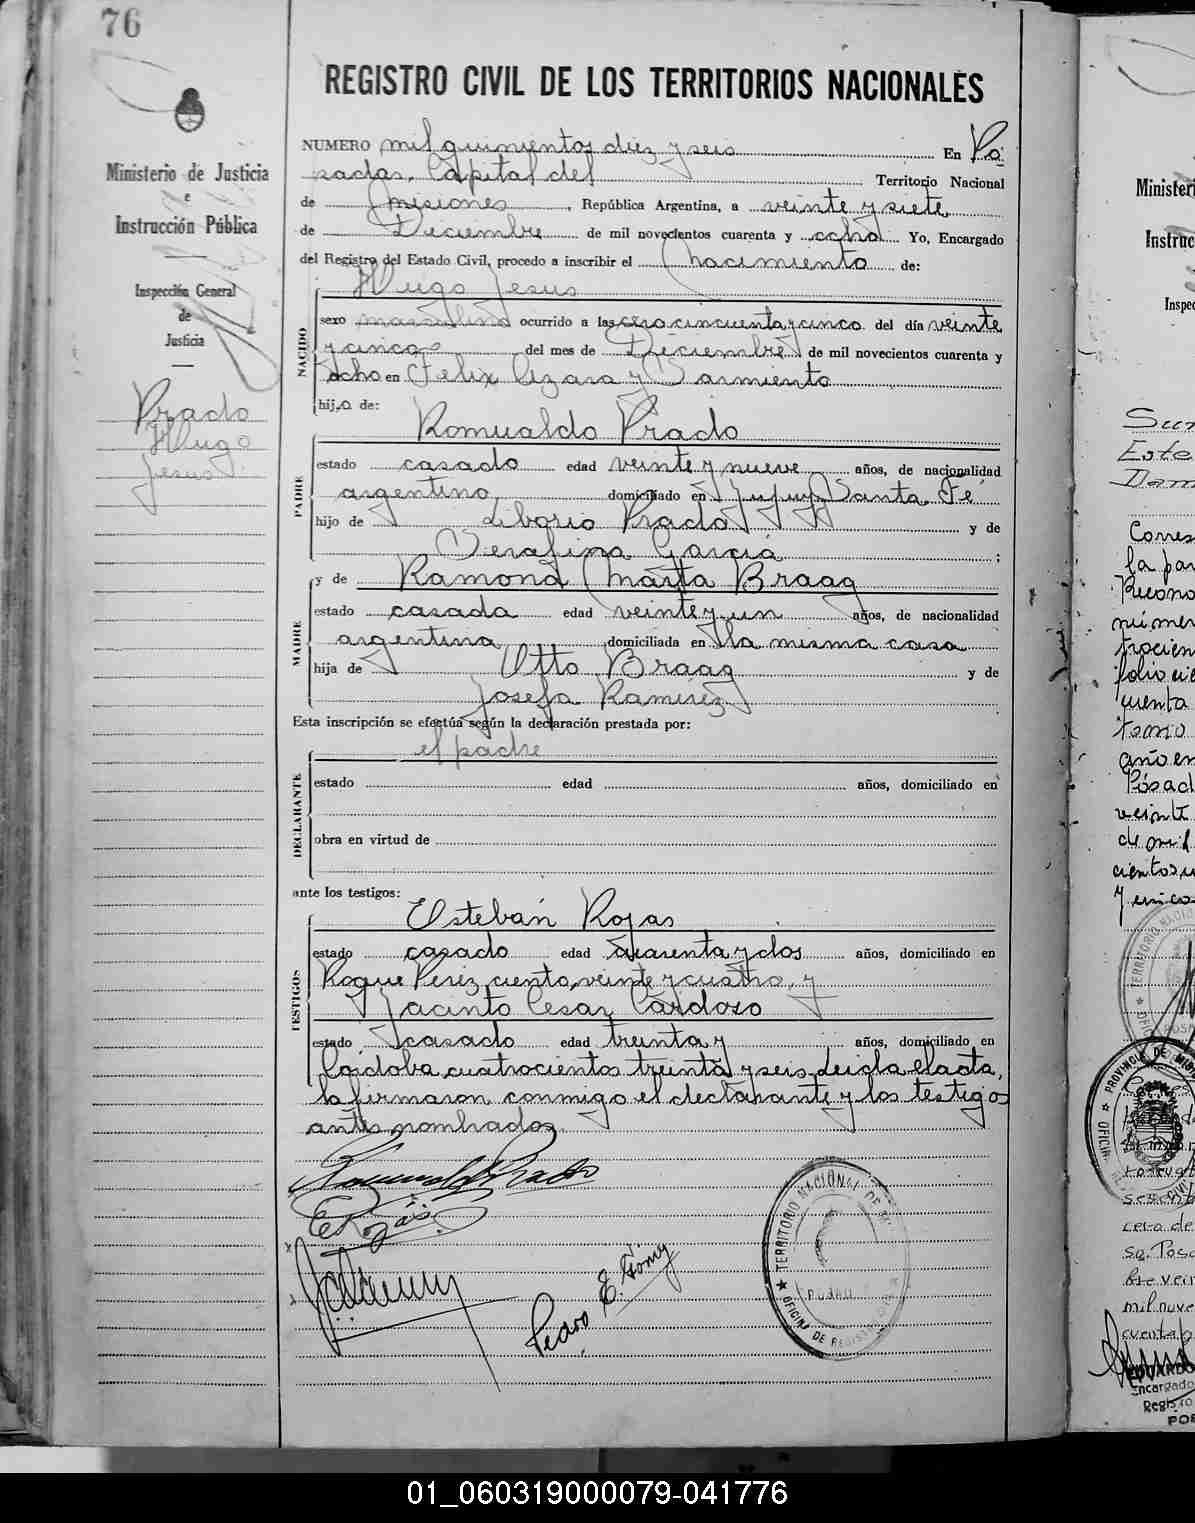 76
REGISTRO CIVIL DE LOS TERRITORIOS NACIONALES
Ministerio de Justicia
e
Instrucción Pública
Inspección General
de
Justicia
Prado
Hugo
Jesus
NUMERO mil quinientos diez y seis En Po
sadas, Capital del Territorio Nacional
de Misiones, República Argentina, a veinte y siete
de Diciembre de mil novecientos cuarenta y ocho Yo, Encargado
del Registro del Estado Civil, procedo a inscribir el nacimiento de:
Hugo Jesus
NACIDO
sexo masculino ocurrido a las cero cincuenta y cinco del día veinte
y cinco del mes de Diciembre de mil novecientos cuarenta y
ocho en Felix Azara y Sarmiento
hijo de:
PADRE
Romualdo Prado
estado casado edad veinte y nueve años, de nacionalidad
argentino domiciliado en Jujuy y Santa Fé
hijo de Liborio Prado y de
Serafina Garcia;
MADRE
y de Ramona Marta Braag
estado casada edad veinte y un años, de nacionalidad
argentina domiciliada en la misma casa
hija de Otto Braag y de
Josefa Ramirez
Esta inscripción se efectúa según la declaración prestada por:
DECLARANTE
el padre
estado edad años, domiciliado en
obra en virtud de
ante los testigos:
TESTIGOS
Esteban Rojas
estado casado edad cuarenta y dos años, domiciliado en
Roque Perez ciento veinte y cuatro, y
Jacinto Cesar Cardozo
estado casado edad treinta y años, domiciliado en
Córdoba cuatrocientos treinta y seis. Leida el acta,
la firmaron conmigo el declarante y los testigos
antes nombrados.
Romualdo Prado
E Rojas
Pedro E.
TERRITORIO NACIONAL DE
OFICINA DE REGISTRO
Minister
Instruc
Inspec
Este
Corres
la par
Recono
trocien
tomo
año en
Posad
veinte
de mil
TERRITORIO NACIO
PROVINCIA DE MISI
OFICIN
Encargado
Registro
POS
01_060319000079-041776